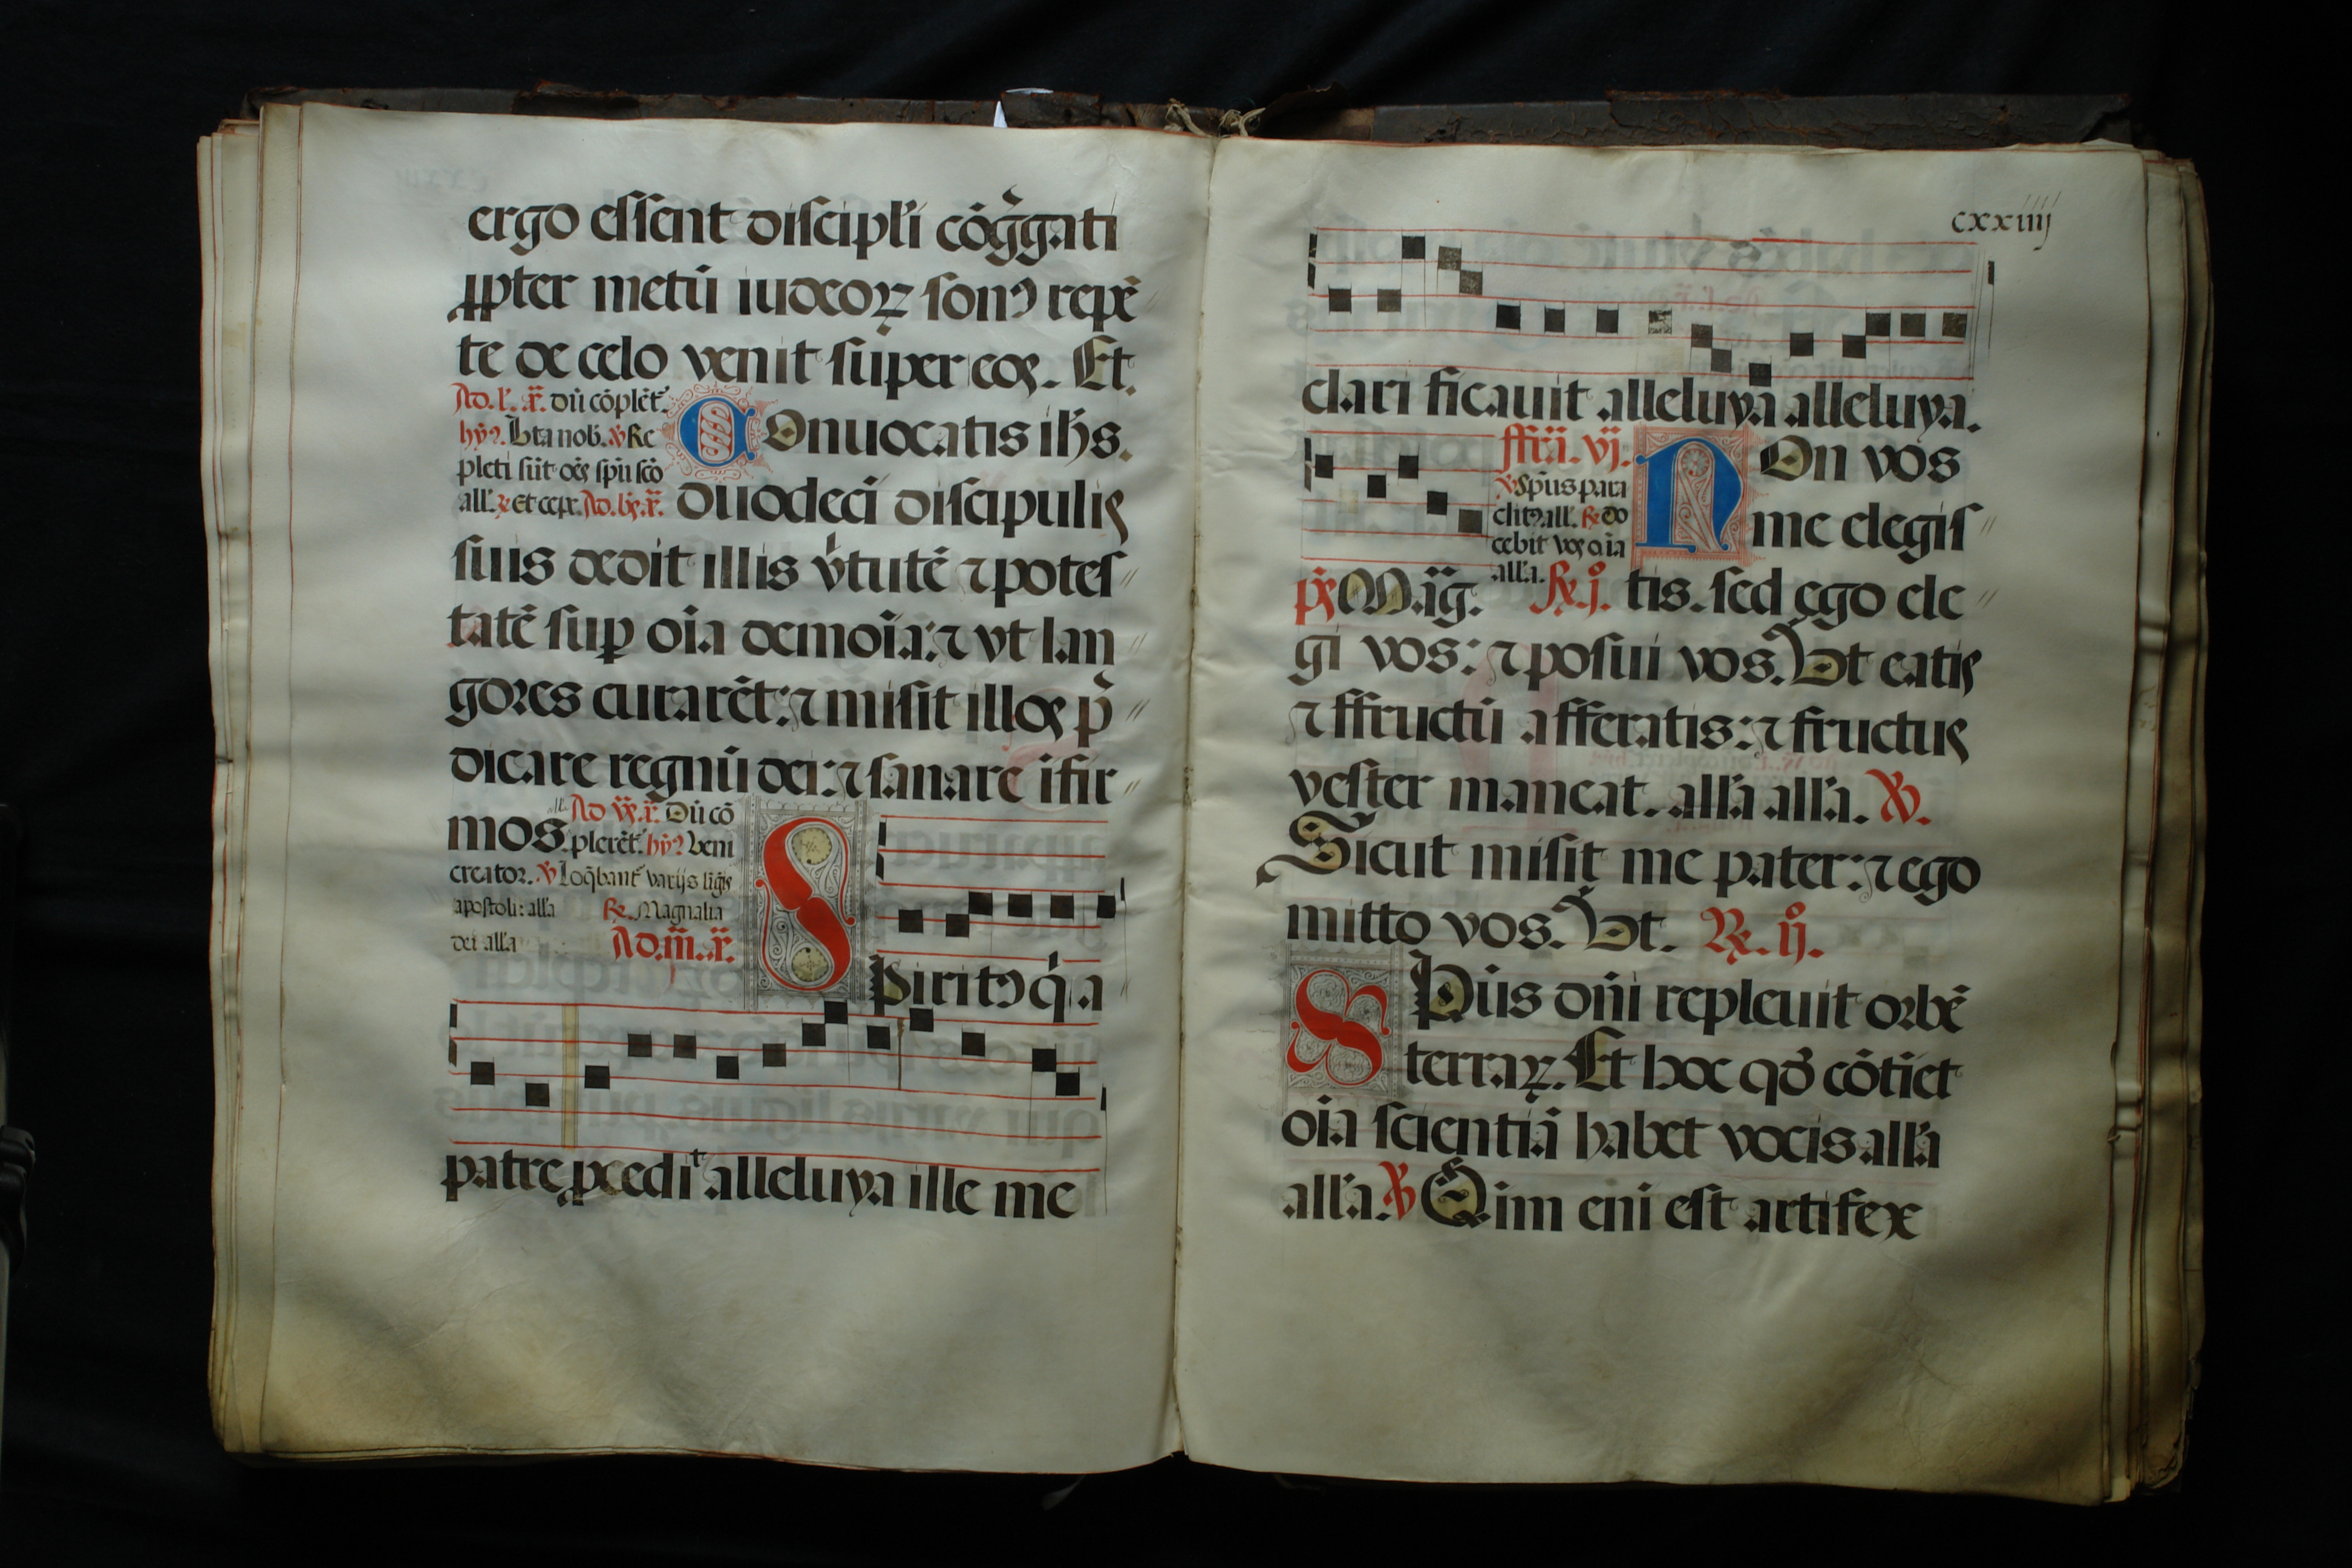 ergo essent discipl'i cōg̃gati
ꝓpter metū iudeoꝝ sonꝰ repē
te de celo venit super eos. Et.
Ad. l'. x̄. dū cōplēt.
hȳꝰ. bta nob. ℣ Re
pleti sūt oēs spū scō
all'. ℟ Et cep̄. Ad. bs. x̄.
COnuocatis ihs.
duodecī discipulis
suis dedit illis v̄tutē ⁊ potes
tatē sup oīa demoīa: ⁊ vt lan
gores curarēt: ⁊ misit illos p̄
dicare regnū dei: ⁊ sanare ifir
mos.
all'. Ad. x̄. Dū cō
plerēt. hȳꝰ Veni
creator. ℣ Loq̄bant varijs ligīs
apostoli: all'a ℟. Magnalia
dei all'a Ad. m̄. x̄.
SPiritꝰ q̄ a
patre ꝓcedit alleluya ille me
cxxiiij
clarificauit alleluya alleluya.
ffr̄a. vj.
℣ Spūs para
clitꝰ all'. ℟ do
cebit vos oīa
all'a. ℟. j.
ps̄ M.ag̃.
NOn vos
me elegis
tis. sed ego ele
gi vos: ⁊ posui vos. Vt eatis
⁊ ffructū afferatis: ⁊ fructus
vester maneat. all'a all'a. ℣.
Sicut misit me pater: ⁊ ego
mitto vos. Vt. ℟. ij.
SPūs dn̄i repleuit orbē
terraꝝ. Et hoc qđ cōtīet
oīa scientiā habet vocis all'a
all'a ℣ Qm̄ eni est artifex